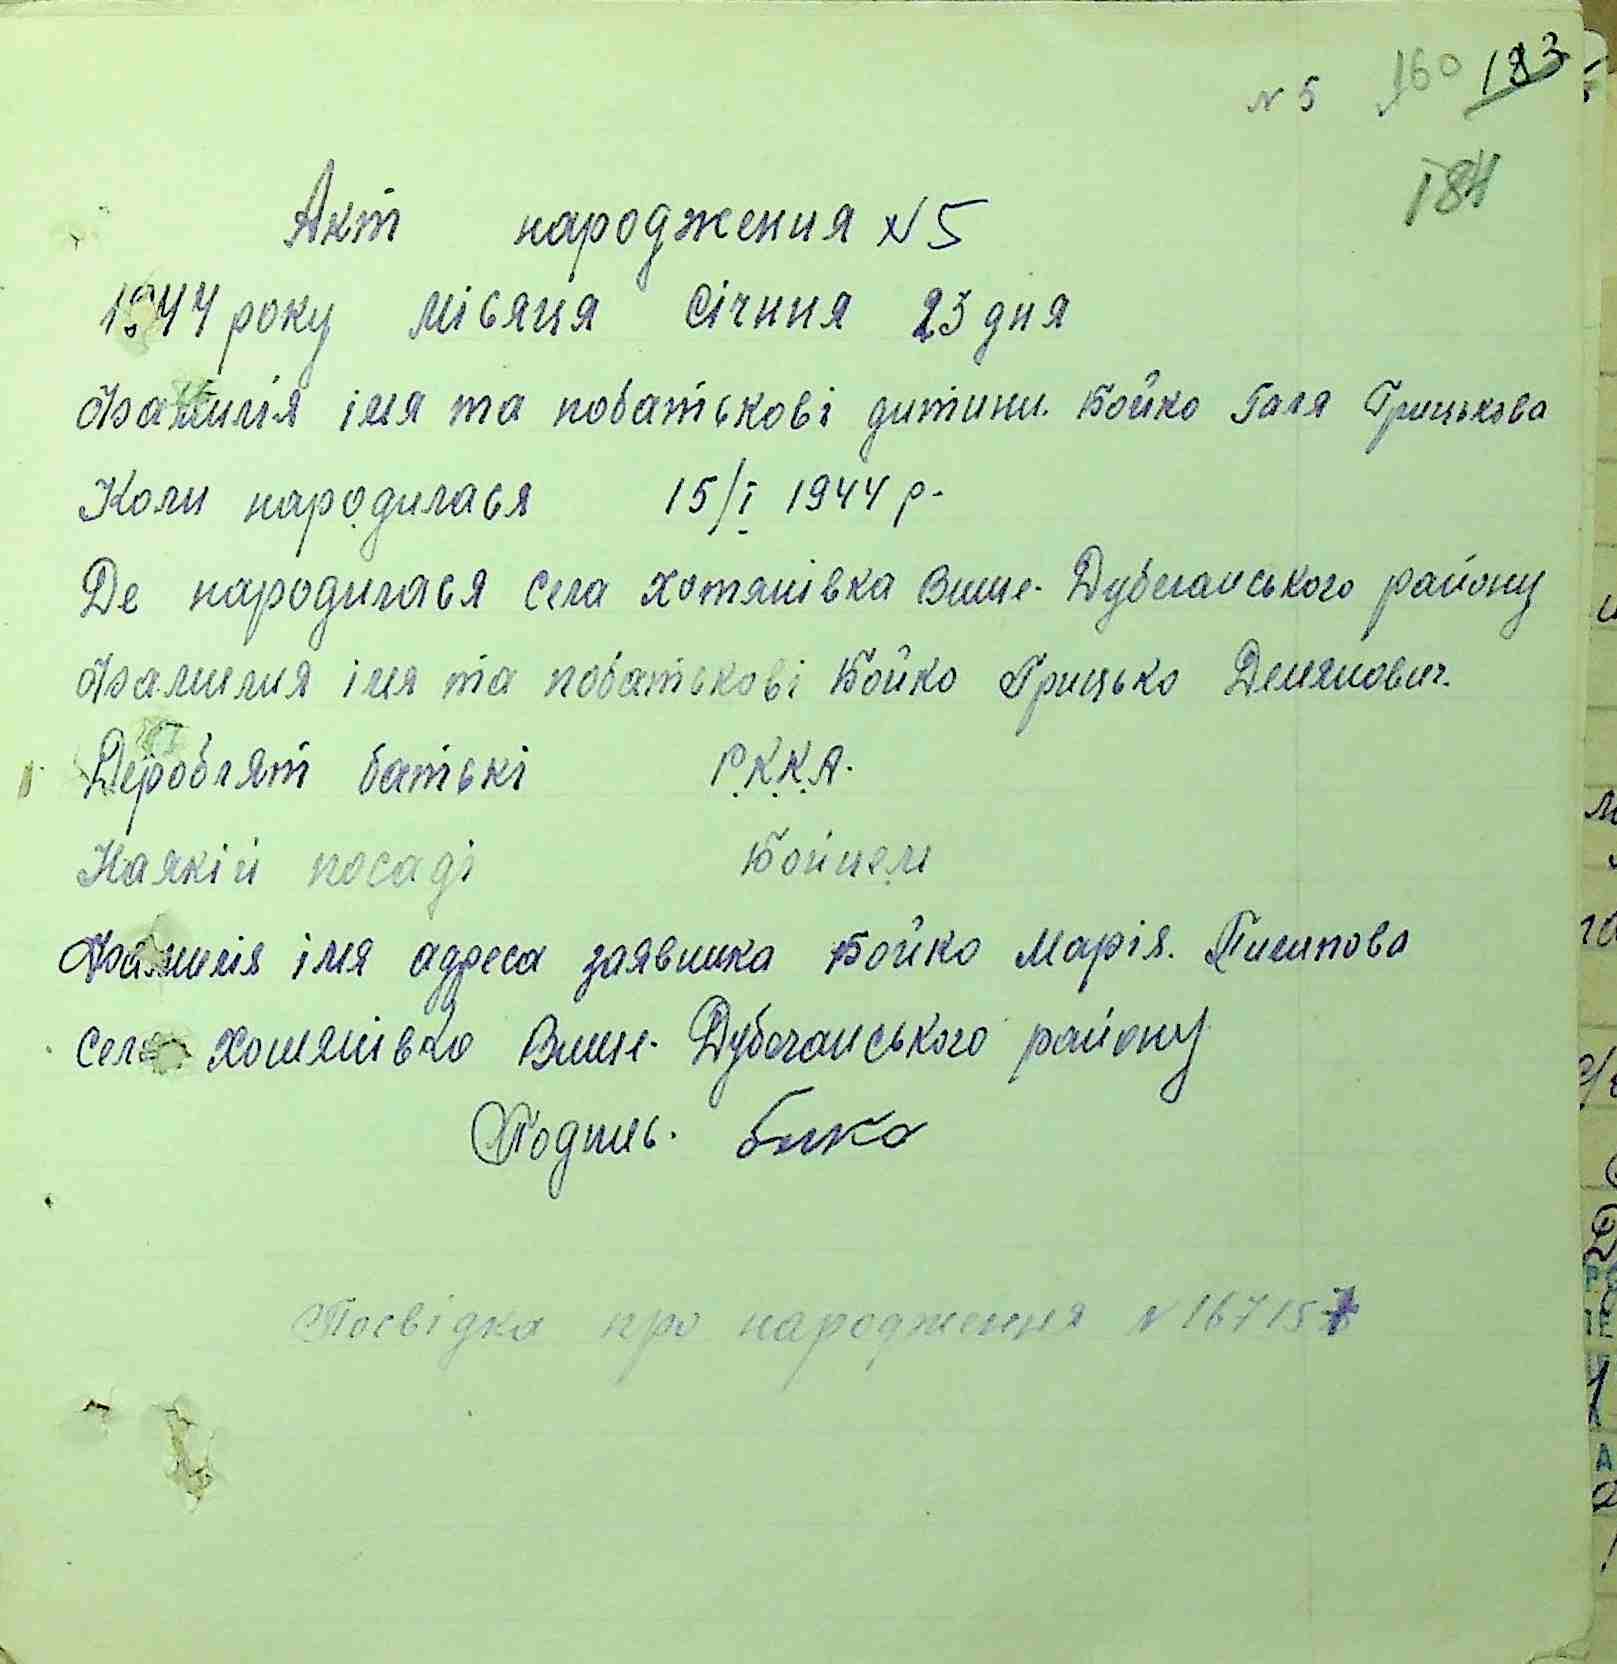 № 5 160 183
184
Акт народження №5
1944 року місяця січння 23 дня
Фамилія імя та побатькові дитини. Бойко Галя Грицькова
Коли народилася 15/І 1944 р.
Де народилася села Хотянівка Вище-Дубечанського району
Фамилия імя та побатькові Бойко Грицько Демянович.
Де роблят батькі Р.К.К.А.
На якій посаді Бойцем
Фамилія імя адреса заявника Бойко Марія.
Село Хотянівко Вище-Дубечанського району
Подпись. Бойко
Посвідка про народження №